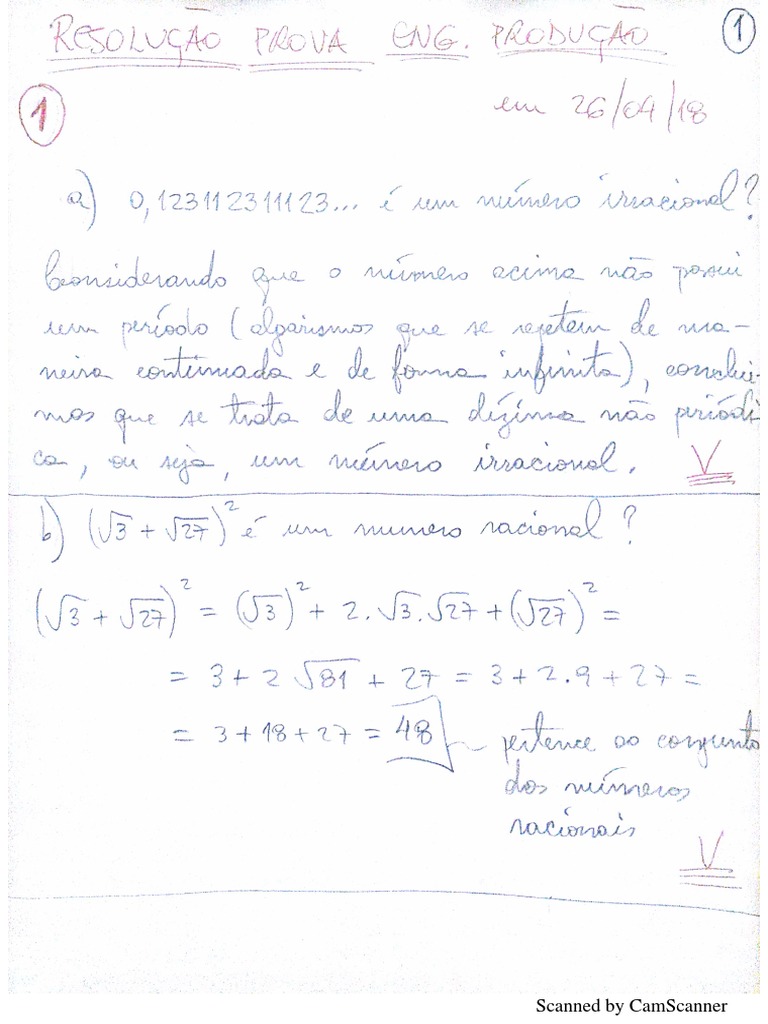 RESOLUÇÃO PROVA ENG. PRODUÇÃO
1
em 26/04/18
1
a) 0,123112311123... é um número irracional?
Considerando que o número acima não possui
um período (algarismos que se repetem de ma-
neira continuada e de forma infinita), conclui-
mos que se trata de uma dízima não periódi
ca, ou seja, um número irracional. V
b) (√3 + √27)² é um numero racional?
(√3 + √27)² = (√3)² + 2.√3.√27 + (√27)² =
= 3 + 2√81 + 27 = 3 + 2.9 + 27 =
= 3 + 18 + 27 = 48 pertence ao conjunto
dos números
racionais
V
Scanned by CamScanner